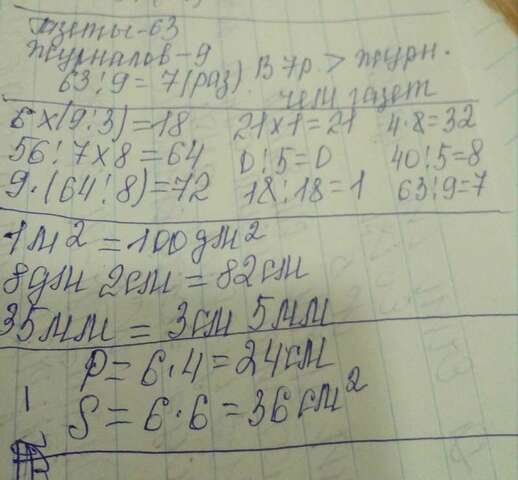 Газеты-63
Журналов-9
63:9=7(раз). В 7р. > журн.
чем газет
6×(9:3)=18 21×1=21 4·8=32
56:7×8=64 0:5=0 40:5=8
9·(64:8)=72 18:18=1 63:9=7
1м²=100дм²
8дм 2см=82см
35мм=3см 5мм
P=6·4=24см
S=6·6=36см²